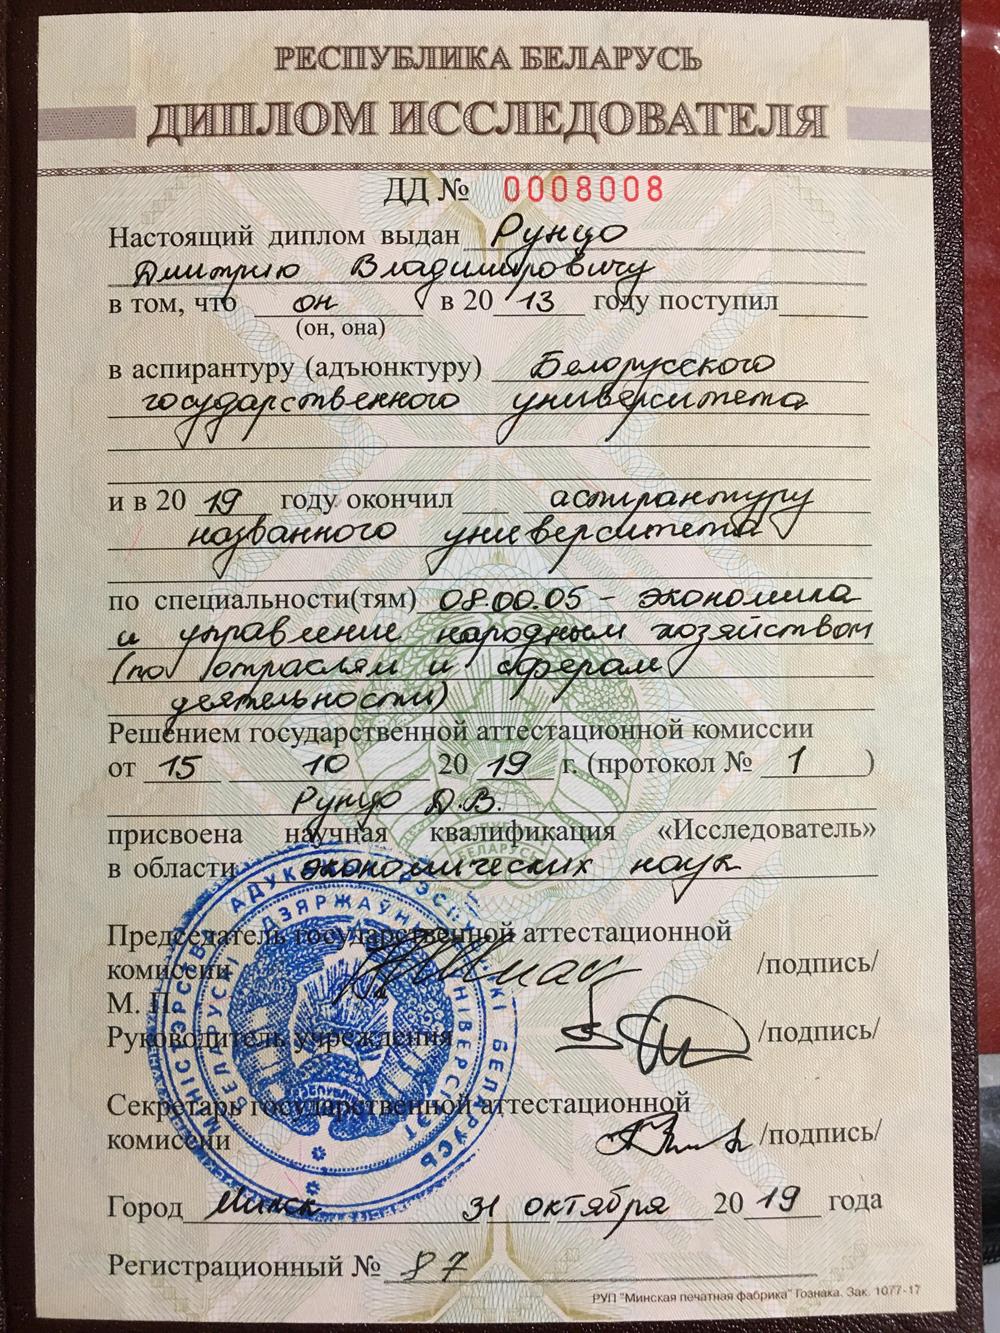 РЕСПУБЛИКА БЕЛАРУСЬ
ДИПЛОМ ИССЛЕДОВАТЕЛЯ
ДД № 0008008
Настоящий диплом выдан Рунцо
Дмитрию Владимировичу
в том, что он в 2013 году поступил
(он, она)
в аспирантуру (адъюнктуру) Белорусского
государственного университета
и в 2019 году окончил аспирантуру
названного университета
по специальности(тям) 08.00.05 - экономика
и управление народным хозяйством
(по отраслям и сферам
деятельности)
Решением государственной аттестационной комиссии
от 15 10 2019 г. (протокол № 1 )
Рунцо Д.В.
присвоена научная квалификация «Исследователь»
в области экономических наук
Председатель государственной аттестационной
комиссии /подпись/
М. П.
Руководитель учреждения /подпись/
Секретарь государственной аттестационной
комиссии /подпись/
Город Минск 31 октября 2019 года
Регистрационный № 87
РУП "Минская печатная фабрика" Гознака. Зак. 1077-17